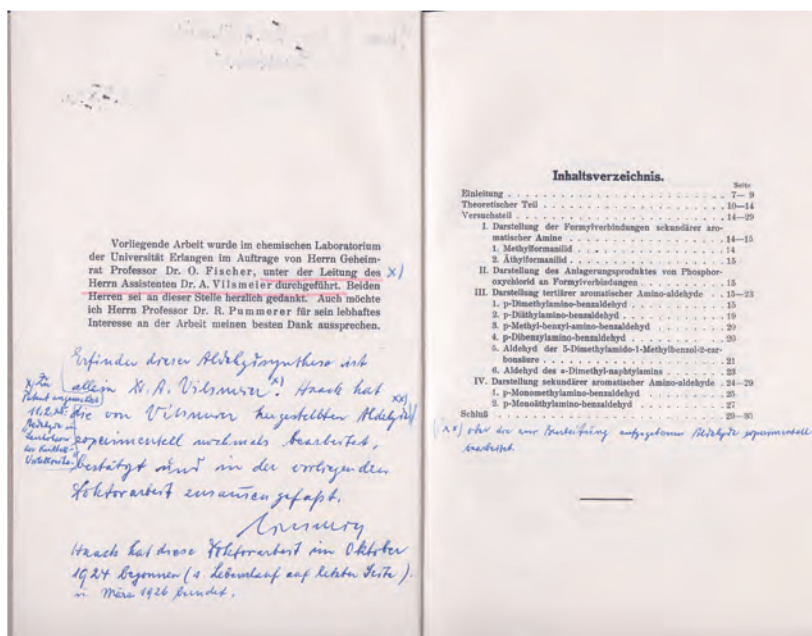 Vorliegende Arbeit wurde im chemischen Laboratorium
der Universität Erlangen im Auftrage von Herrn Geheim-
rat Professor Dr. O. Fischer, unter der Leitung des x)
Herrn Assistenten Dr. A. Vilsmeier durchgeführt. Beiden
Herren sei an dieser Stelle herzlich gedankt. Auch möchte
ich Herrn Professor Dr. R. Pummerer für sein lebhaftes
Interesse an der Arbeit meinen besten Dank aussprechen.
Erfinder dieser Aldehydsynthese ist
allein Dr. A. Vilsmeier! x) Haack hat xx)
die von Vilsmeier hergestellten Aldehyde
experimentell nochmals bearbeitet,
bestätigt und in der vorliegenden
Doktorarbeit zusammen gefaßt.
x) Zu
Patent
11.2.
Aldehyde
Haack hat diese Doktorarbeit im Oktober
1924 begonnen (s. Lebenslauf auf letzter Seite).
u März 1926 beendet.
Inhaltsverzeichnis.
Seite
Einleitung . . . . . 7— 9
Theoretischer Teil . . . . . 10—14
Versuchsteil . . . . . 14—29
I. Darstellung der Formylverbindungen sekundärer aro-
matischer Amine . . . . . 14—15
1. Methylformanilid . . . . . 14
2. Äthylformanilid . . . . . 15
II. Darstellung des Anlagerungsproduktes von Phosphor-
oxychlorid an Formylverbindungen . . . . . 15
III. Darstellung tertiärer aromatischer Amino-aldehyde . 15—23
1. p-Dimethylamino-benzaldehyd . . . . . 15
2. p-Diäthylamino-benzaldehyd . . . . . 19
3. p-Methyl-benzyl-amino-benzaldehyd . . . . . 20
4. p-Dibenzylamino-benzaldehyd . . . . . 20
5. Aldehyd der 3-Dimethylamido-1-Methylbenzol-2-car-
bonsäure . . . . . 21
6. Aldehyd des α-Dimethyl-naphtylamins . . . . . 23
IV. Darstellung sekundärer aromatischer Amino-aldehyde . 24—29
1. p-Monomethylamino-benzaldehyd . . . . . 25
2. p-Monoäthylamino-benzaldehyd . . . . . 27
Schluß . . . . . 29—30
xx) oder die zur Bearbeitung aufgegebenen Aldehyde experimentell
bearbeitet.